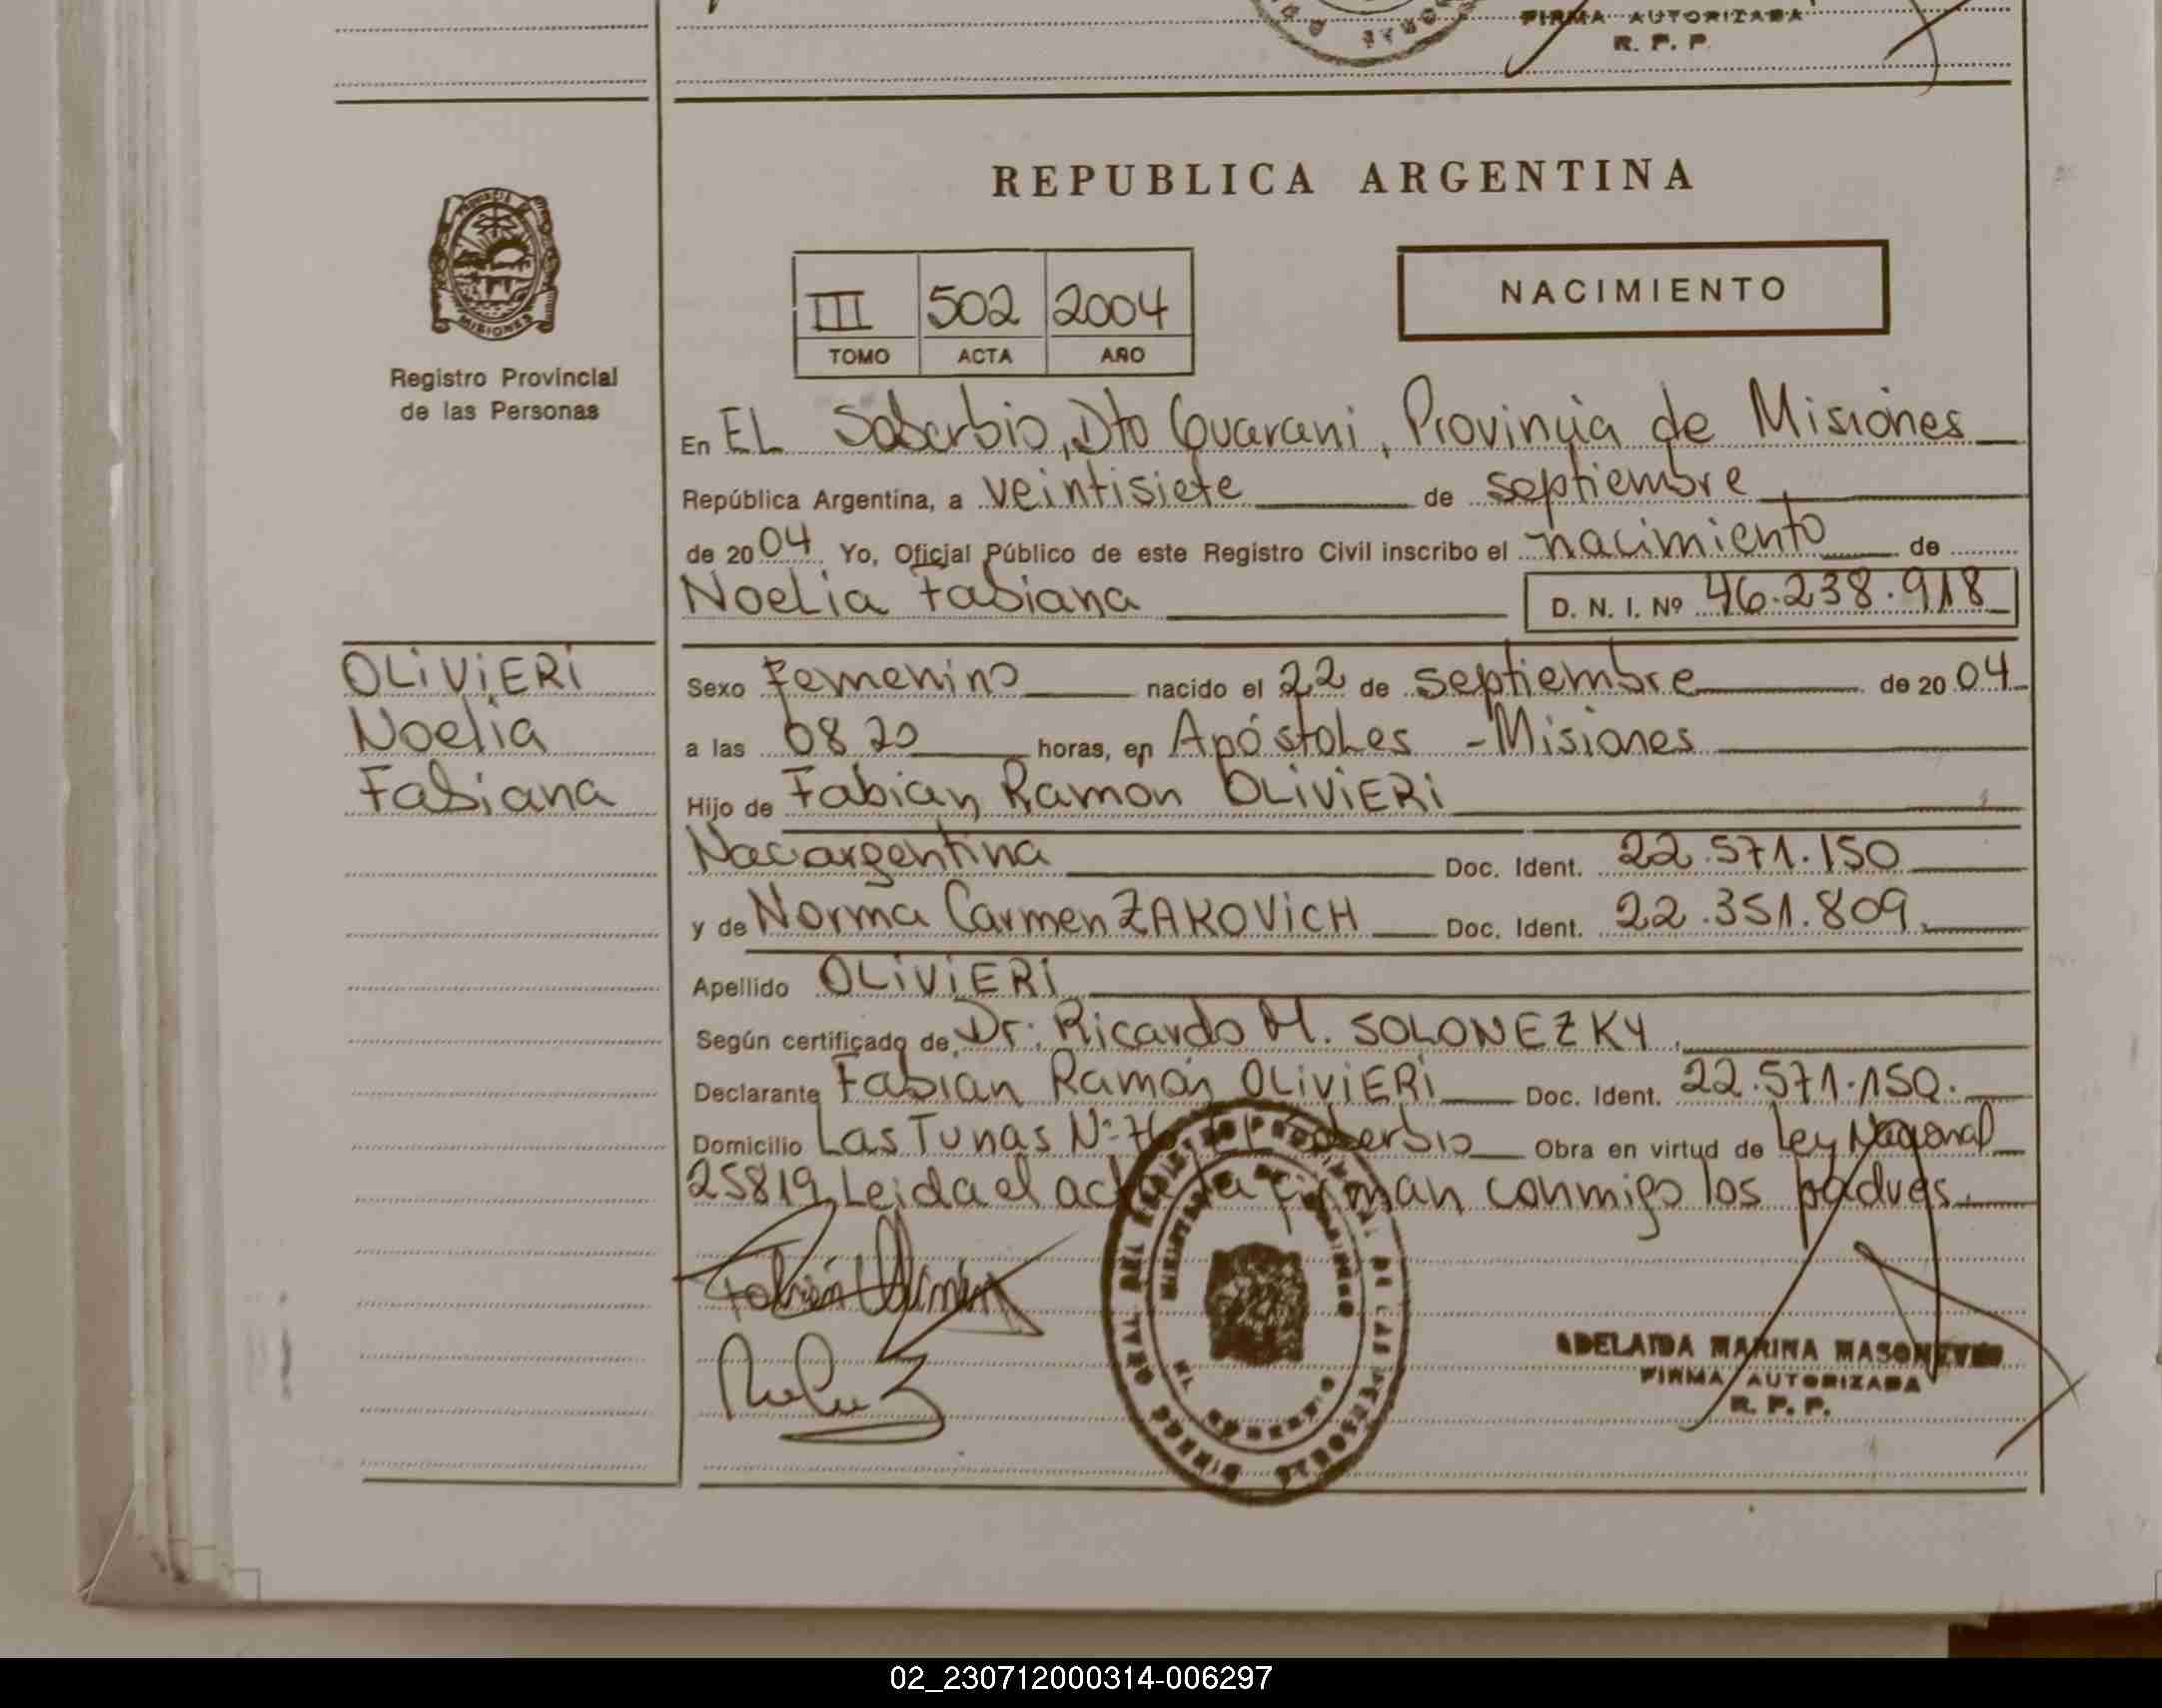 FIRMA AUTORIZADA
R. P. P.
REPUBLICA ARGENTINA
PROVINCIA DE
MISIONES
Registro Provincial
de las Personas
III 502 2004
TOMO ACTA AÑO
NACIMIENTO
En EL Soberbio, Dto Guarani, Provincia de Misiones
República Argentina, a veintisiete de septiembre
de 2004 Yo, Oficial Público de este Registro Civil inscribo el nacimiento de
Noelia Fabiana D. N. I. Nº 46.238.918
OLiViERi
Noelia
Fabiana
Sexo Femenino nacido el 22 de septiembre de 2004
a las 08 20 horas, en Apóstoles - Misiones
Hijo de Fabian Ramon OLiViERi
Nac argentina Doc. Ident. 22.571.150
y de Norma Carmen ZAKOViCH Doc. Ident. 22.351.809.
Apellido OLiViERi
Según certificado de Dr. Ricardo M. SOLONEZKY.
Declarante Fabian Ramón OLiViERi Doc. Ident. 22.571.150.
Domicilio Las Tunas Nº EL Soberbio Obra en virtud de Ley Nacional
25819, Leida el acta la firman conmigo los padres.
Fabián Olivieri
ADELAIDA MARINA
FIRMA AUTORIZADA
R. P. P.
02_230712000314-006297